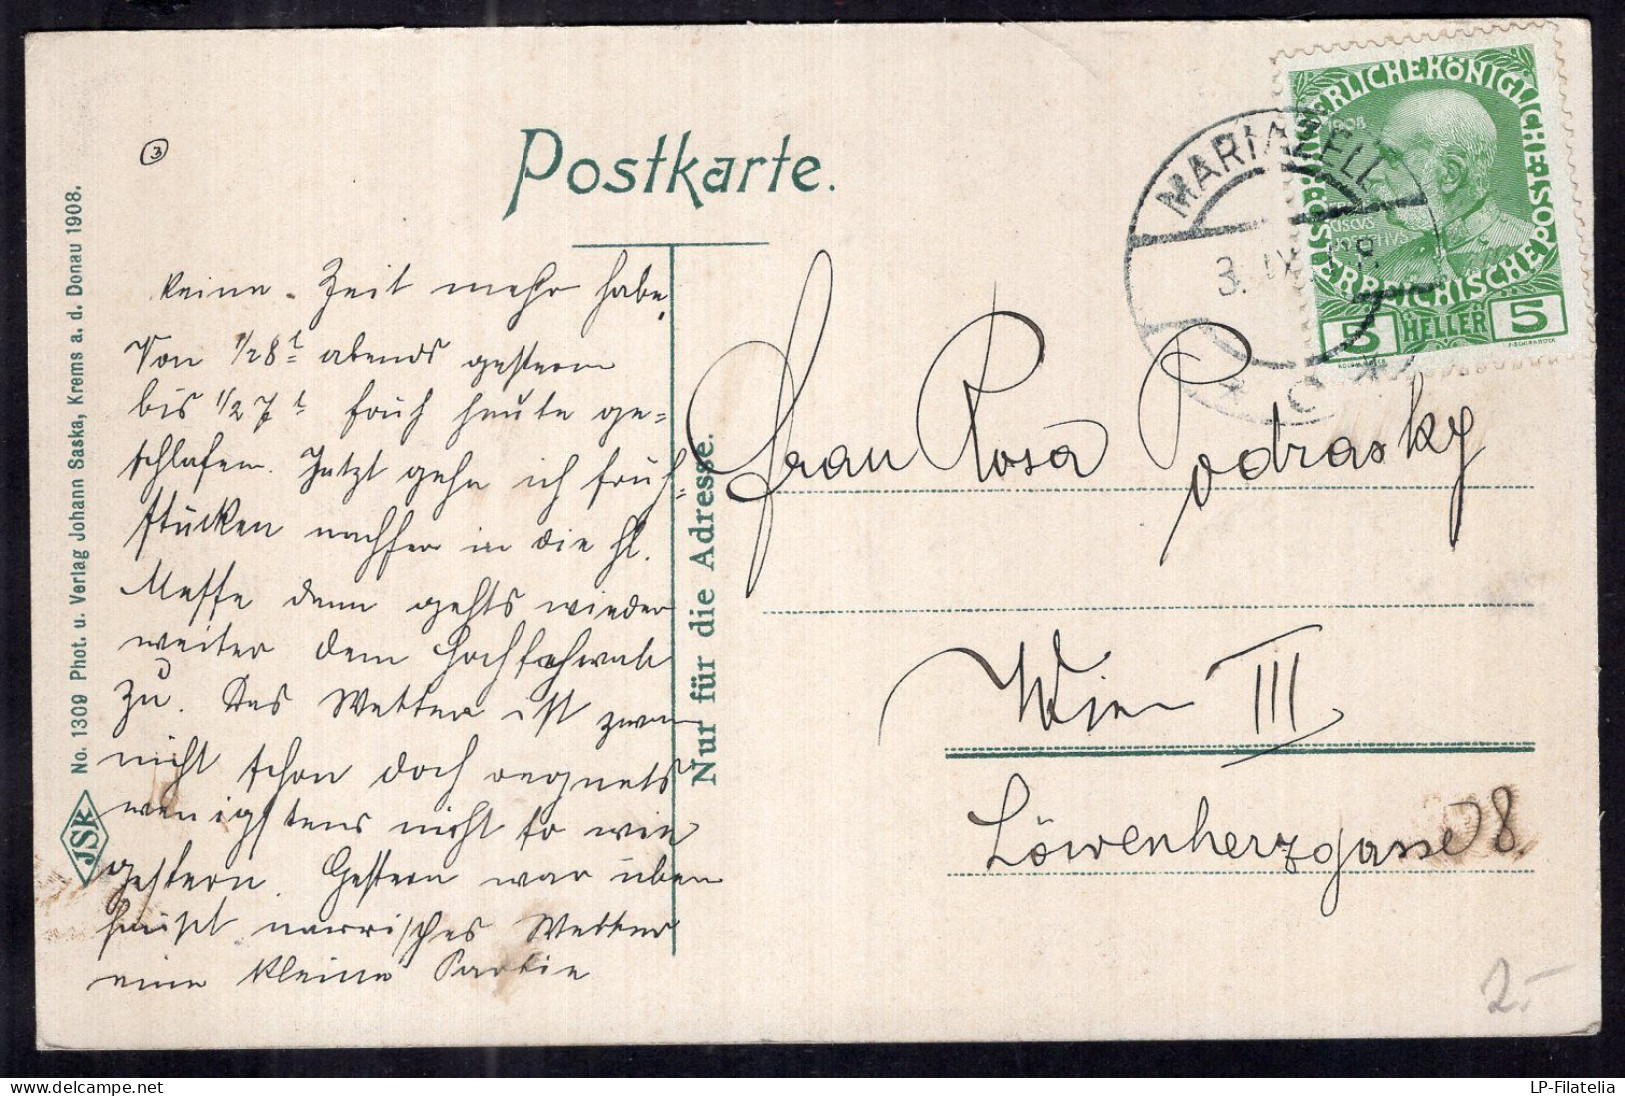 ③
Postkarte.
No. 1309 Phot. u. Verlag Johann Saska, Krems a. d. Donau 1908.
JSK
keine Zeit mehr habe.
Von 1/2 8 t abends gestern
bis 1/2 7 t früh heute ge=
schlafen. Jetzt gehe ich früh=
stücken nachher in die hl.
Messe dann gehts wieder
weiter dem Hochschwab
zu. Das Wetter ist zwar
nicht schön doch regnets
wenigstens nicht so wie
gestern. Gestern war über
haupt narrisches Wetter
eine kleine Partie
Nur für die Adresse.
KAISERLICHE KÖNIGLICHE ÖSTERREICHISCHE POST
1908
5 HELLER 5
MARIAZELL
3. IX 08
* C *
Frau Rosa Podrasky
Wien III
Löwenherzgasse 8.
2.-
LP-Filatelia